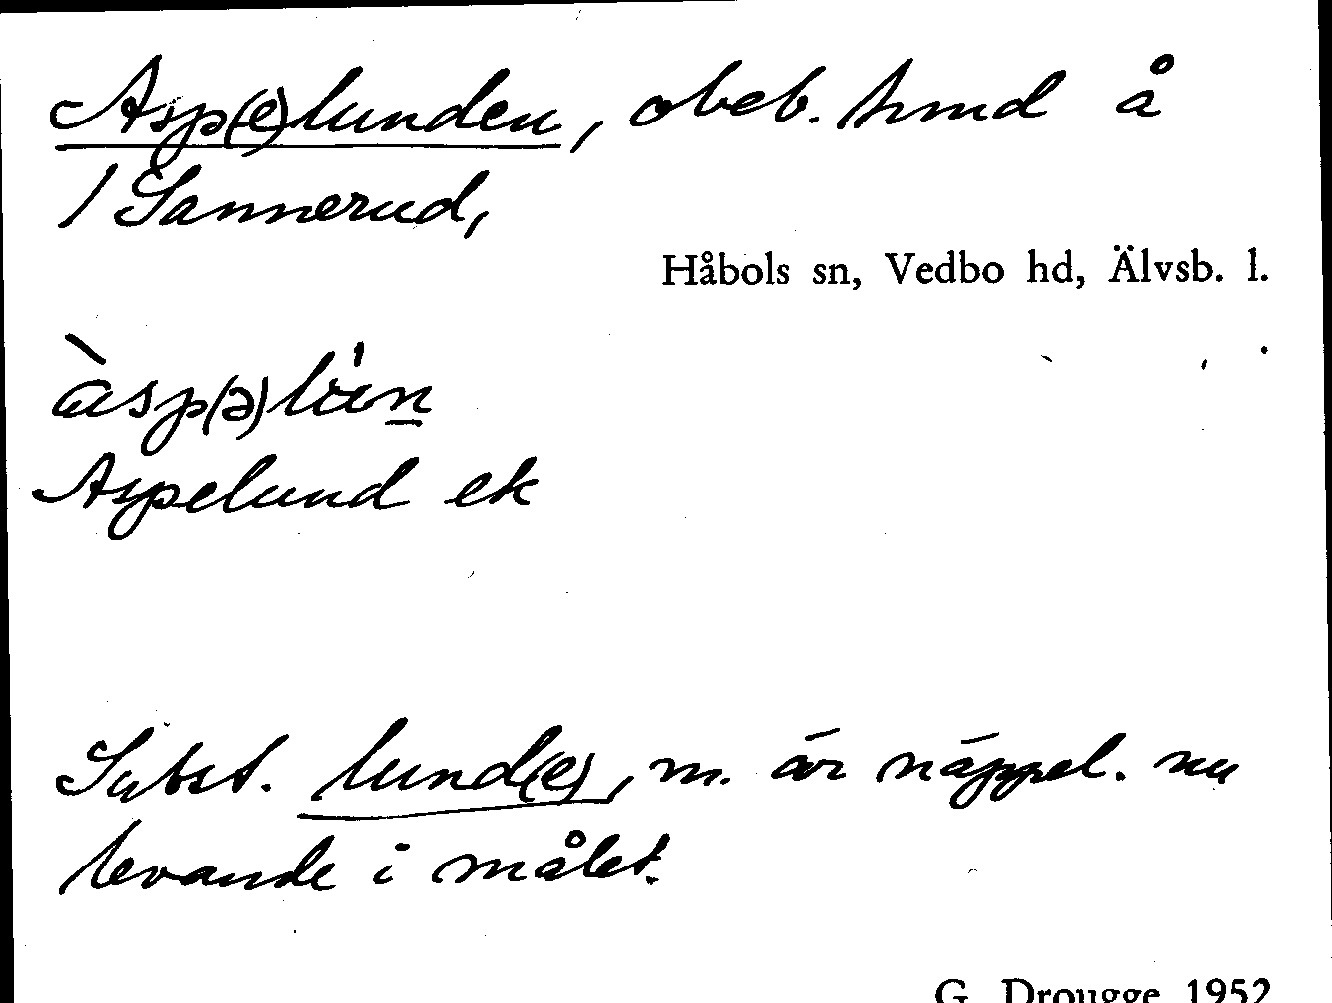 Asp(e)lunden, obeb. hmd å
1 Sannerud,
Håbols sn, Vedbo hd, Älvsb. l.
àsp(ə)lu̇n̲
Aspelund ek
Subst. lund(e), m. är näppel. nu
levande i målet.
G. Drougge 1952